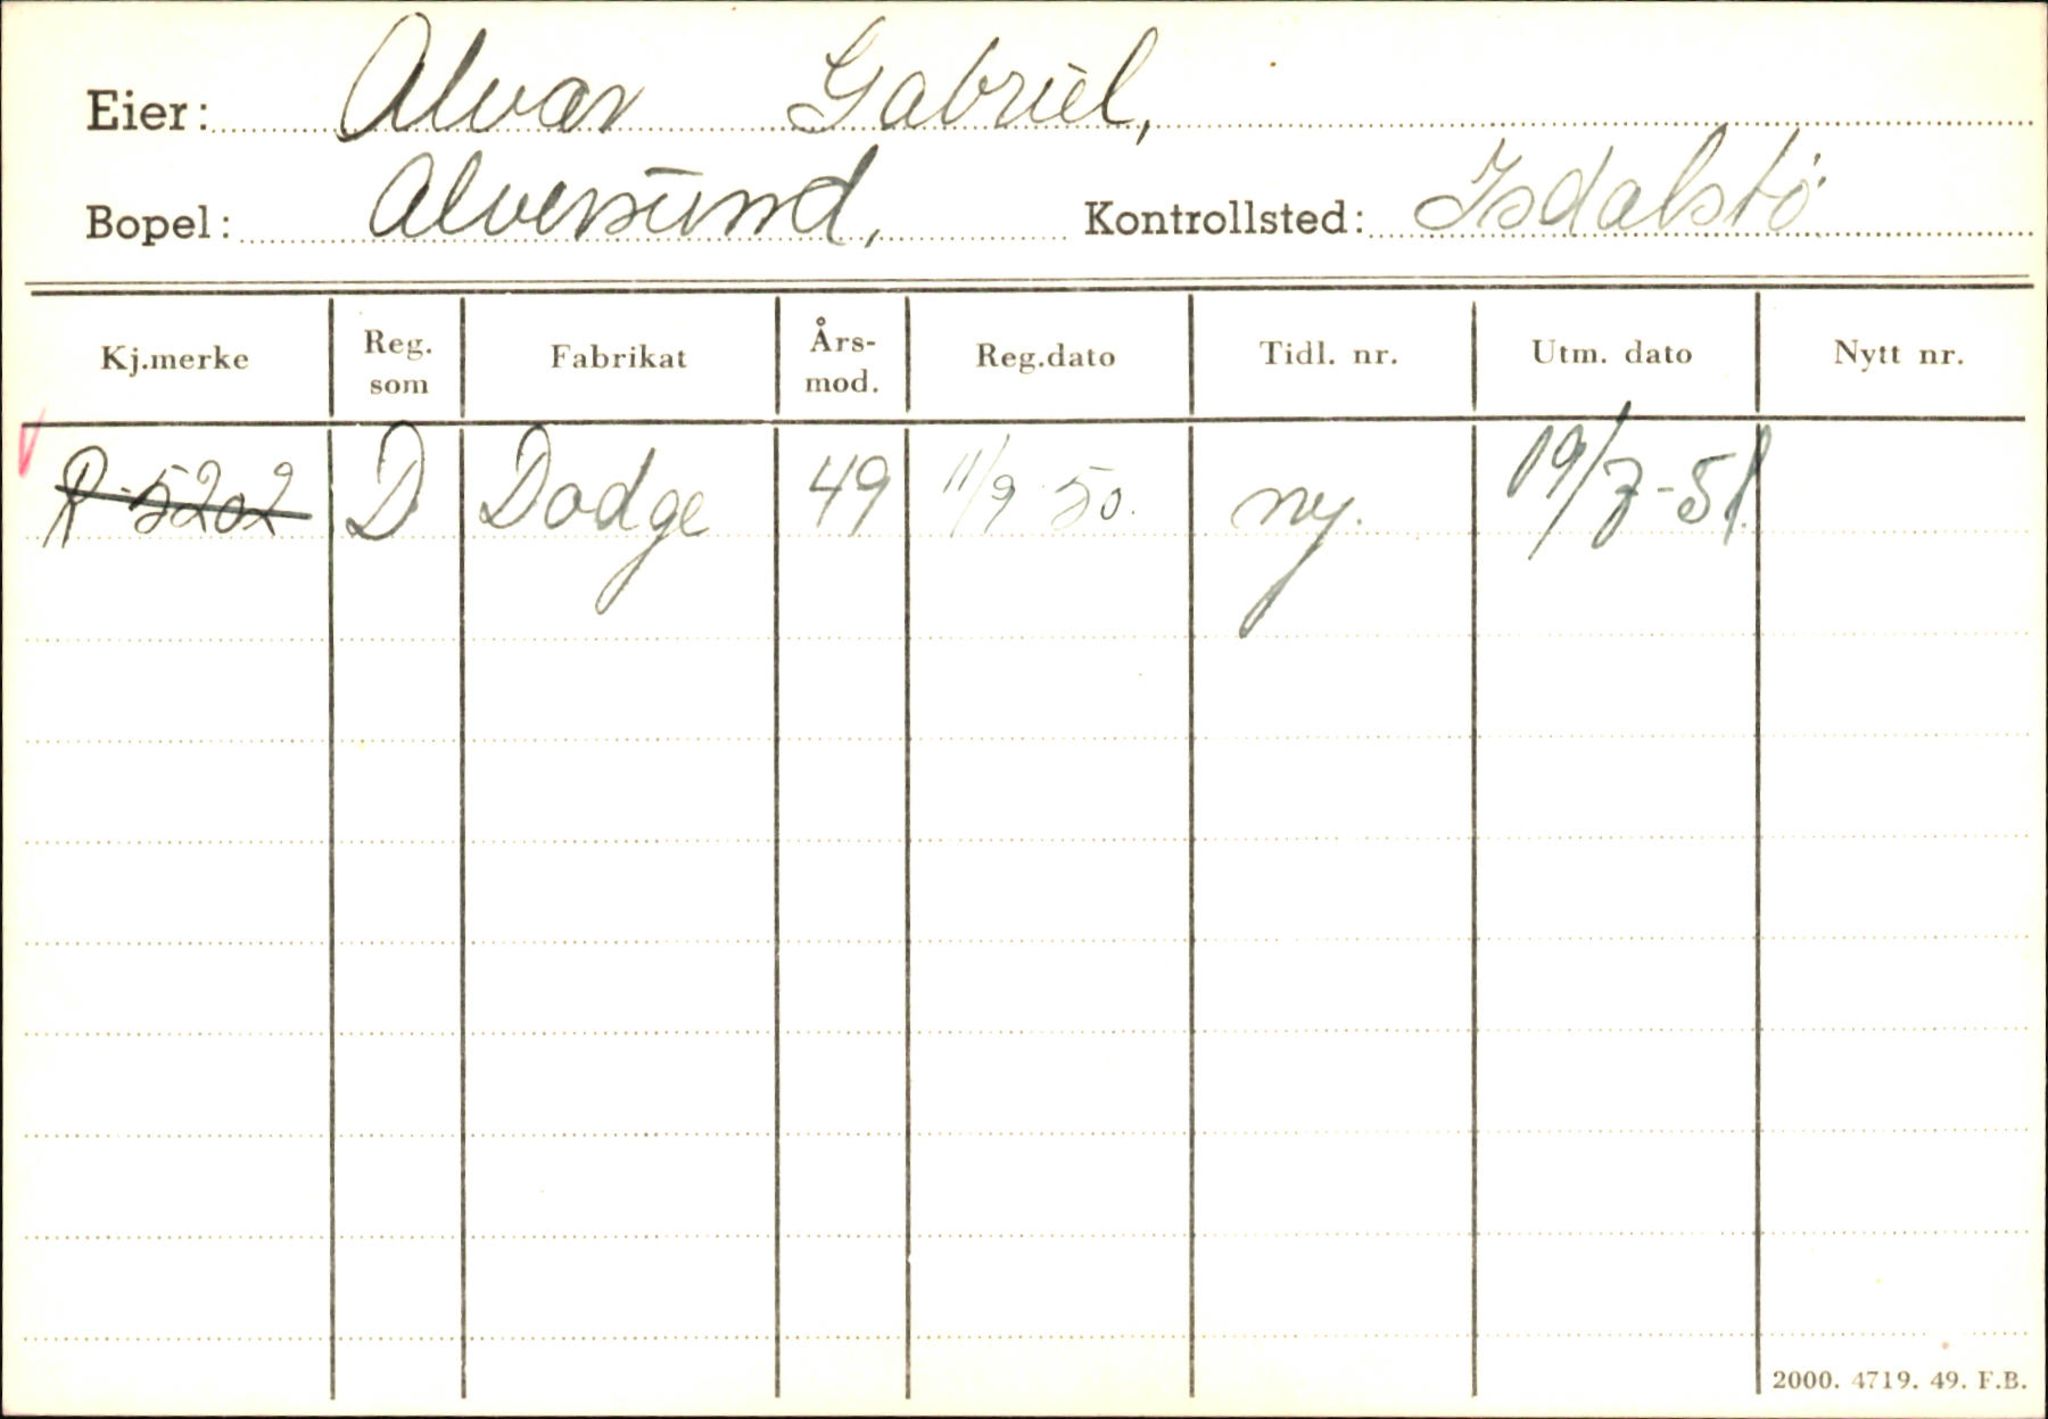 Eier: Alvær Gabriel,
Bopel: Alversund, Kontrollsted: Isdalstö
Kj.merke Reg. som Fabrikat Års-mod. Reg.dato Tidl. nr. Utm. dato Nytt nr.
R-5202 D Dodge 49 11/9 50. ny. 19/7-51.
2000. 4719. 49. F.B.